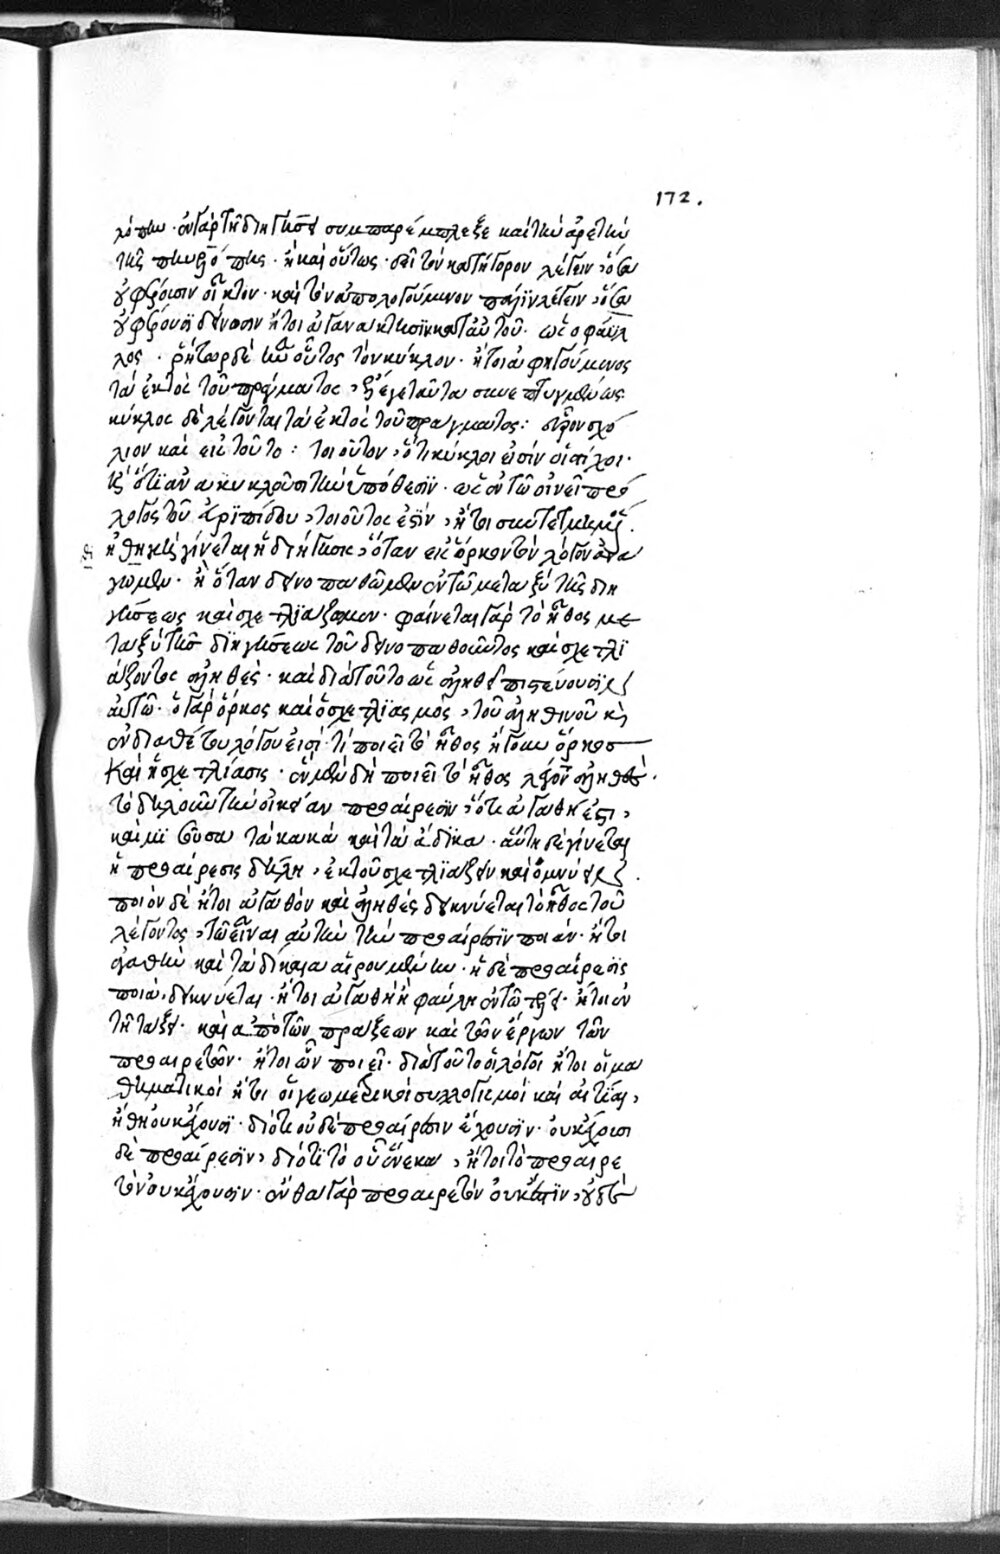 172.
λόπην· ἐν γὰρ τῇ διηγήσει συμπαρέμπλεξε καὶ τὴν ἀρετὴν
τῆς πηνελόπης· ἢ καὶ οὕτως· δεῖ τὸν κατήγορον λέγειν, ὅσα
οἶκτον· καὶ τὸν ἀπολογούμενον πάλιν λέγειν, ὅσα
δείνωσιν ἤτοι ἀγανάκτησιν κατ' αὐτοῦ· ὡς ὁ φάϋλ
λος· ῥήτωρ δὲ ἦν οὗτος τὸν κύκλον· ἤτοι ἀφηγούμενος
τὰ ἐκτὸς τοῦ πράγματος, ταῦτα συνεπτυγμένως
κύκλος δὲ λέγονται τὰ ἐκτὸς τοῦ πράγματος: σχό
λιον καὶ εἰς τοῦτο: τοιοῦτον, ὅτι κύκλοι εἰσὶν οἱ στίχοι·
ὅτι ἀνακυκλοῦσι τὴν ὑπόθεσιν· ὡς ἐν τῷ οἰνεῖ πρό
λογος τοῦ εὐριπίδου, τοιοῦτος ἐστὶν, ἤτοι συντετμημένος.
ἠθικὴ γίνεται ἡ διήγησις, ὅταν εἰς ὅρκον τὸν λόγον ἀνα
γωμεν· ἢ ὅταν δεινοπαθῶμεν ἐν τῷ μεταξὺ τῆς διη
γήσεως καὶ σχετλιάζωμεν· φαίνεται γὰρ τὸ ἦθος με
ταξὺ τῆς διηγήσεως τοῦ δεινοπαθοῦντος καὶ σχετλι
άζοντος ἀληθές· καὶ διὰ τοῦτο ὡς ἀληθεῖ πιστεύουσιν
αὐτῷ· ὁ γὰρ ὅρκος καὶ ὁ σχετλιασμὸς, τοῦ ἀληθινοῦ καὶ
ἐνδιαθέτου λόγου εἰσί· τί ποιεῖ τὸ ἦθος ἤγουν ὅρκος
καὶ ἡ σχετλίασις· ἓν μὲν δὴ ποιεῖ τὸ ἦθος ἀληθὲς·
τὸ δηλοῦν τὴν οἰκείαν προαίρεσιν, ὅτι ἀγαθή ἐστι,
καὶ μισοῦσα τὰ κακὰ καὶ τὰ ἄδικα· αὕτη δὲ γίνεται
ἡ προαίρεσις δήλη, ἐκ τοῦ σχετλιάζειν καὶ ὀμνύειν.
ποιὸν δὲ ἤτοι ἀγαθὸν καὶ ἀληθὲς δεικνύεται τὸ ἦθος τοῦ
λέγοντος, τῷ εἶναι αὐτὴν τὴν προαίρεσιν ποιάν· ἤτοι
ἀγαθὴν καὶ τὰ δίκαια αἱρουμένην· ἡ δὲ προαίρεσις
ποιὰ δεικνύεται· ἤτοι ἀγαθὴ ἢ φαύλη ἐν τῷ τέλει· ἤτοι ἐν
τῇ τάξει· καὶ ἀπὸ τῶν πράξεων καὶ τῶν ἔργων τῶν
προαιρετῶν· ἤτοι ὧν ποιεῖ· διὰ τοῦτο οἱ λόγοι ἤτοι οἱ μα
θηματικοὶ ἤτοι οἱ γεωμετρικοὶ συλλογισμοὶ καὶ αἰτίαι,
ἤθη οὐκ ἔχουσι· διότι οὐδὲ προαίρεσιν ἔχουσιν· οὐκ ἔχουσι
δὲ προαίρεσιν, διότι τὸ οὗ ἕνεκα, ἤτοι τὸ προαιρε
τὸν οὐκ ἔχουσιν· ἔνθα γὰρ προαιρετὸν οὐκ ἔστιν, οὐδὲ